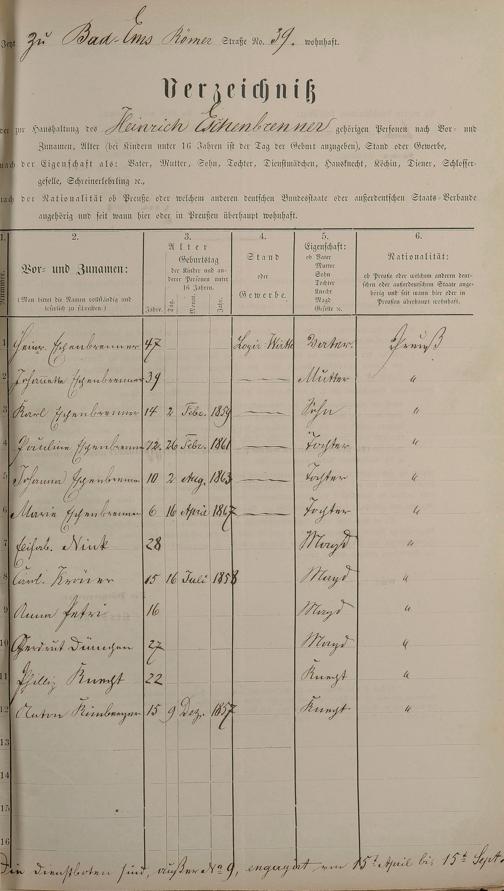 Jetzt zu Bad-Ems Römer Straße No. 39. wohnhaft.
Verzeichniß
der zur Haushaltung des Heinrich Eschenbrenner gehörigen Personen nach Vor- und
Zunamen, Alter (bei Kindern unter 16 Jahren ist der Tag der Geburt anzugeben), Stand oder Gewerbe,
nach der Eigenschaft als: Vater, Mutter, Sohn, Tochter, Dienstmädchen, Hausknecht, Köchin, Diener, Schlosser-
geselle, Schreinerlehrling ꝛc.,
nach der Nationalität ob Preuße oder welchem anderen deutschen Bundesstaate oder außerdeutschen Staats-Verbande
angehörig und seit wann hier oder in Preußen überhaupt wohnhaft.
1. 2. 3. 4. 5. 6.
Nummer.
Vor- und Zunamen:
(Man bittet die Namen vollständig und
leserlich zu schreiben.)
Alter
Jahre.
Geburtstag
der Kinder und an-
derer Personen unter
16 Jahren.
Tag. Monat. Jahr.
Stand
oder
Gewerbe.
Eigenschaft:
ob Vater
Mutter
Sohn
Tochter
Knecht
Magd
Geselle ꝛc.
Nationalität:
ob Preuße oder welchem anderen deut-
schen oder außerdeutschen Staate ange-
hörig und seit wann hier oder in
Preußen überhaupt wohnhaft.
1 Heinr. Eschenbrenner 47 Logir Wirth Vater. Preuß
2 Johanette Eschenbrenner 39 — Mutter "
3 Karl Eschenbrenner 14 2 Febr. 1859 — Sohn "
4 Pauline Eschenbrenner 12. 26 Febr. 1861 — Tochter "
5 Johanna Eschenbrenner 10 2 Aug. 1863 — Tochter "
6 Marie Eschenbrenner 6 16 April 1867 — Tochter "
7 Elisab. Nink 28 Magd "
8 Carl. 15 16 Juli 1858 Magd "
9 Anna Petri 16 Magd "
10 Gertrut 27 Magd "
11 Phillip Knecht 22 Knecht "
12 Anton Kimberger 15 9 Dez. 1857 Knecht "
13
14
15
16
Die Dienstboten sind, außer No 9, engagirt von 15t April bis 15t Sept.